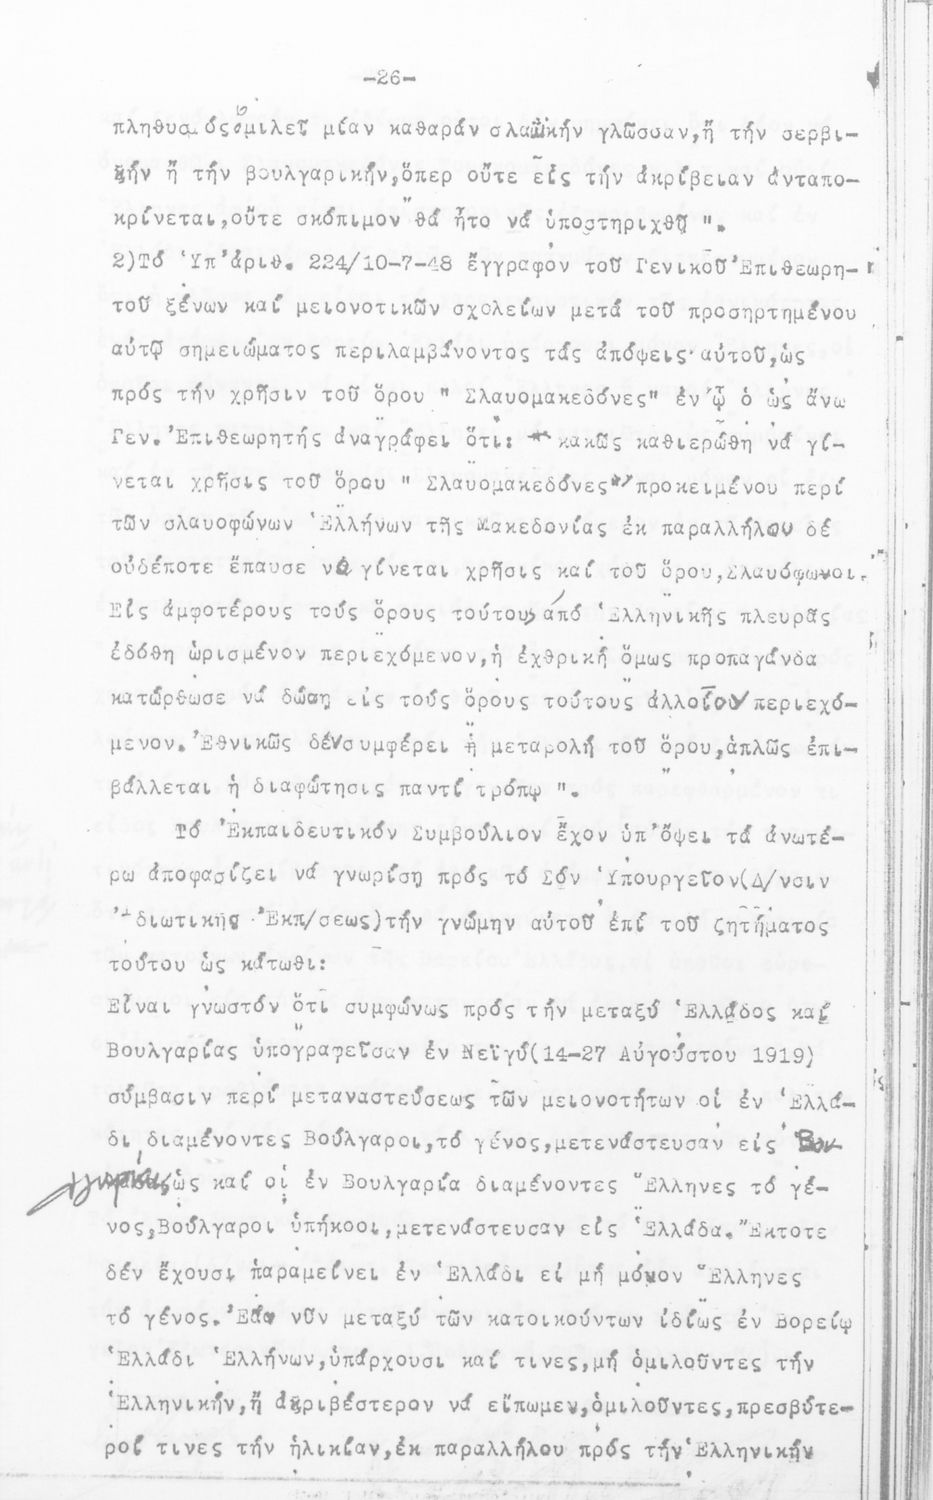 -26-
πληθυσμός ὁμιλεῖ μίαν καθαράν σλαβικήν γλῶσσαν,ἤ τήν σερβι-
κήν ἤ τήν βουλγαρικήν,ὅπερ οὔτε εἰς τήν ἀκρίβειαν ἀνταπο-
κρίνεται,οὔτε σκόπιμον θά ἦτο νά ὑποστηριχθῇ ".
2)Τό Ὑπ'ἀριθ. 224/10-7-48 ἔγγραφον τοῦ Γενικοῦ Ἐπιθεωρη-
τοῦ ξένων καί μειονοτικῶν σχολείων μετά τοῦ προσηρτημένου
αὐτῷ σημειώματος περιλαμβάνοντος τάς ἀπόψεις αὐτοῦ,ὡς
πρός τήν χρῆσιν τοῦ ὅρου " Σλαυομακεδόνες" ἐν ᾧ ὁ ὡς ἄνω
Γεν. Ἐπιθεωρητής ἀναγράφει ὅτι: " κακῶς καθιερώθη νά γί-
νεται χρῆσις τοῦ ὅρου " Σλαυομακεδόνες" προκειμένου περί
τῶν σλαυοφώνων Ἑλλήνων τῆς Μακεδονίας ἐκ παραλλήλου δέ
οὐδέποτε ἔπαυσε νά γίνεται χρῆσις καί τοῦ ὅρου,Σλαυόφωνοι.
Εἰς ἀμφοτέρους τούς ὅρους τούτους ἀπό Ἑλληνικῆς πλευρᾶς
ἐδόθη ὡρισμένον περιεχόμενον,ἡ ἐχθρική ὅμως προπαγάνδα
κατώρθωσε νά δώσῃ εἰς τούς ὅρους τούτους ἀλλοῖον περιεχό-
μενον. Ἐθνικῶς δέν συμφέρει ἡ μεταβολή τοῦ ὅρου,ἁπλῶς ἐπι-
βάλλεται ἡ διαφώτησις παντί τρόπῳ ".
Τό Ἐκπαιδευτικόν Συμβούλιον ἔχον ὑπ'ὄψει τά ἀνωτέ-
ρω ἀποφασίζει νά γνωρίσῃ πρός τό Σόν Ὑπουργεῖον(Δ/νσιν
Ἰδιωτικῆς Ἐκπ/σεως)τήν γνώμην αὐτοῦ ἐπί τοῦ ζητήματος
τούτου ὡς κάτωθι:
Εἶναι γνωστόν ὅτι συμφώνως πρός τήν μεταξύ Ἑλλάδος καί
Βουλγαρίας ὑπογραφεῖσαν ἐν Νεϊγύ(14-27 Αὐγούστου 1919)
σύμβασιν περί μεταναστεύσεως τῶν μειονοτήτων οἱ ἐν Ἑλλά-
δι διαμένοντες Βούλγαροι,τό γένος,μετενάστευσαν εἰς Βου-
λγαρίας,ὡς καί οἱ ἐν Βουλγαρία διαμένοντες Ἕλληνες τό γέ-
νος,Βούλγαροι ὑπήκοοι,μετενάστευσαν εἰς Ἑλλάδα. Ἔκτοτε
δέν ἔχουσι παραμείνει ἐν Ἑλλάδι εἰ μή μόνον Ἕλληνες
τό γένος. Ἐάν νῦν μεταξύ τῶν κατοικούντων ἰδίως ἐν Βορείῳ
Ἑλλάδι Ἑλλήνων,ὑπάρχουσι καί τινες,μή ὁμιλοῦντες τήν
Ἑλληνικήν,ἤ ἀκριβέστερον νά εἴπωμεν,ὁμιλοῦντες,πρεσβύτε-
ροί τινες τήν ἡλικίαν,ἐκ παραλλήλου πρός τήν Ἑλληνικήν